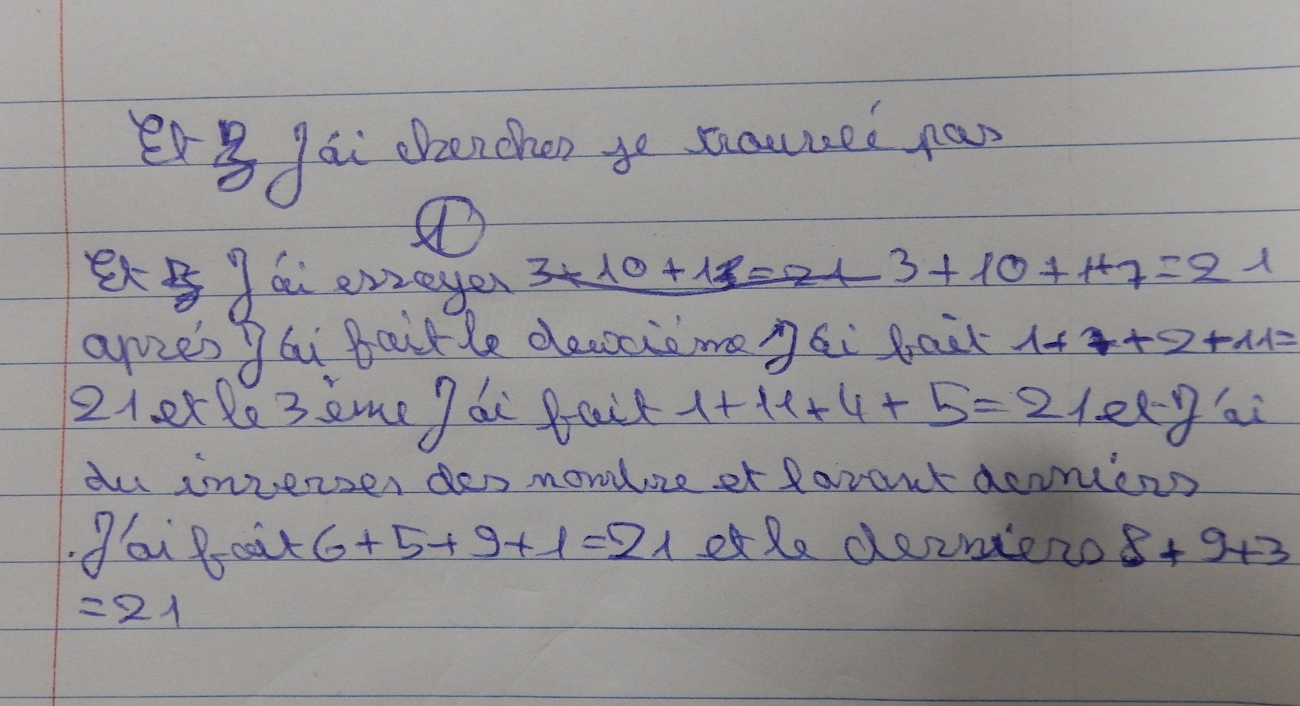 Et 3 J'ai chercher je trouvéé pas
1
Et 3 J'ai essayer 3+10+1 =21 3+10+1+7=21
aprés J'ai fait le deuxiéme J'ai fait 1+7+2+11=
21 et le 3 ème J'ai fait 1+11+4+5=21 et J'ai
du inverser des nombre et lavant derniérs
. J'ai fait 6+5+9+1=21 et le derniers 8+9+3
=21